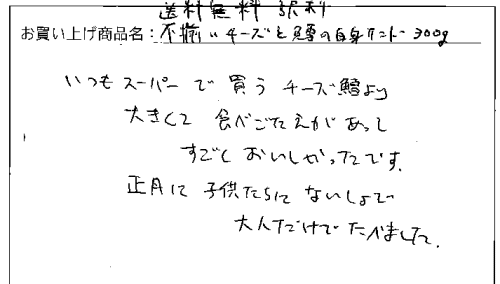 送料無料 訳あり
お買い上げ商品名：不揃いチーズと鱈の白身サンド 300g
いつもスーパーで買うチーズ鱈より
大きくて食べごたえがあって
すごくおいしかったです。
正月に子供たちにないしょで
大人だけでたべました。